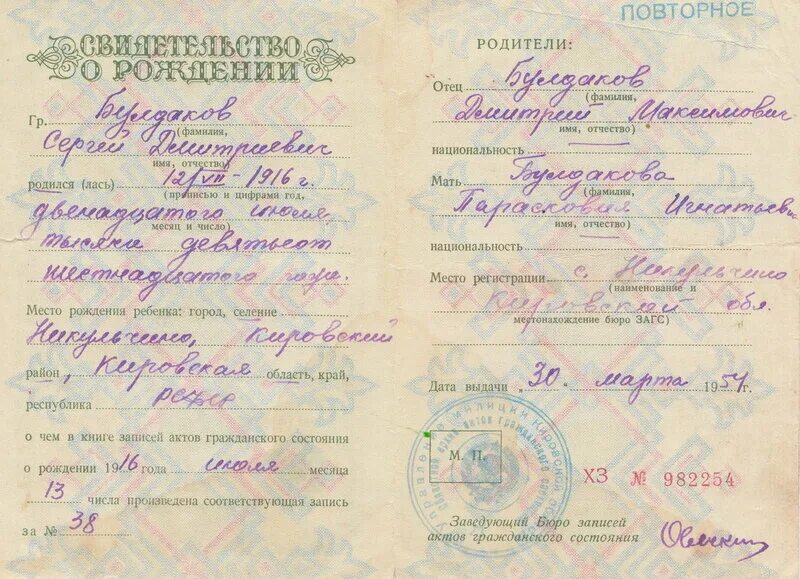 СВИДЕТЕЛЬСТВО
О РОЖДЕНИИ
Гр. Булдаков
(фамилия,
Сергей Дмитриевич
имя, отчество)
родился (лась) 12/VII – 1916 г.
(прописью и цифрами год,
двенадцатого июля
месяц и число)
тысяча девятьсот
шестнадцатого года.
Место рождения ребенка: город, селение
Никульчино, Кировский
район, Кировская область, край,
республика РСФСР
о чем в книге записей актов гражданского состояния
о рождении 1916 года июля месяца
13 числа произведена соответствующая запись
за № 38
ПОВТОРНОЕ
РОДИТЕЛИ:
Отец Булдаков
(фамилия,
Дмитрий Максимович
имя, отчество)
национальность —
Мать Булдакова
(фамилия,
Парасковия Игнатьевн
имя, отчество)
национальность —
Место регистрации с. Никульчино
(наименование и
Кировской обл.
местонахождение бюро ЗАГС)
Дата выдачи „30“ марта 1954 г.
Управление милиции Кировской
записи актов гражданского
М. П.
ХЗ № 982254
Заведующий Бюро записей
актов гражданского состояния